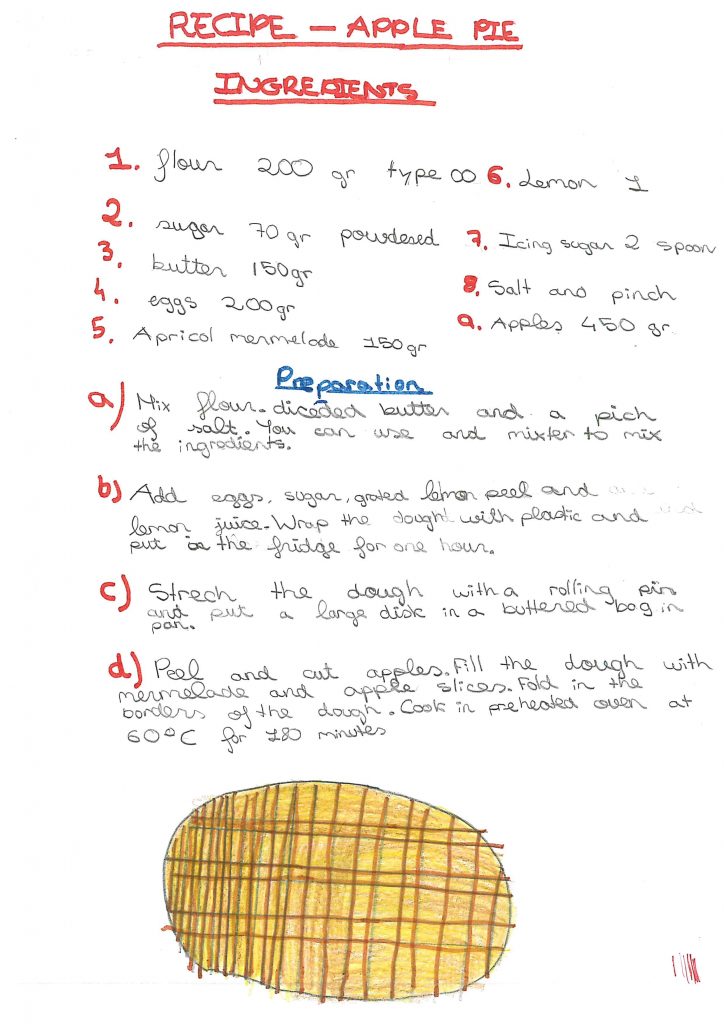 RECIPE - APPLE PIE
INGREDIENTS
1. flour 200 gr type 00
2. sugar 70 gr powdered
3. butter 150 gr
4. eggs 200 gr
5. Apricol mermelade 150 gr
6. Lemon 1
7. Icing sugar 2 spoon
8. Salt and pinch
9. Apples 450 gr.
Preparation
a) Mix flour. diceded butter and a pich
of salt. You can use and mixter to mix
the ingredients.
b) Add eggs, sugar, grated lemon peel and
lemon juice. Wrap the dought with plastic and
put in the fridge for one hour.
c) Strech the dough with a rolling pin
and put a large disk in a buttered bag in
pan.
d) Peel and cut apples. Fill the dough with
mermelade and apple slices. Fold in the
borders of the dough. Cook in preheated oven at
60°C for 180 minutes